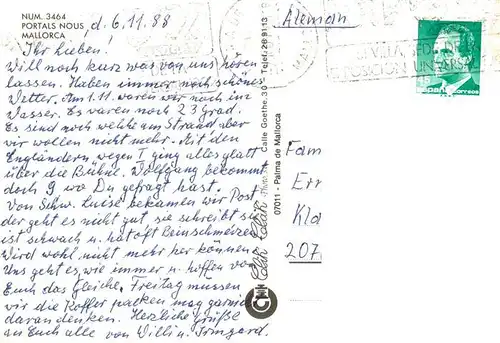 NUM. 3464
PORTALS NOUS
MALLORCA
d. 6.11.88
Ihr Lieben!
Will noch kurz was von uns hören
lassen. Haben immer noch schönes
Wetter. Am 1.11. waren wir noch im
Wasser. Es waren noch 23 Grad.
Es sind noch welche am Strand aber
wir wollen nicht mehr. Mit den
Engländern wegen T ging alles glatt
über die Bühne. Wolfgang bekommt
doch 9 wo Du gefragt hast.
Von Schw. Luise bekamen wir Post
der geht es nicht gut sie schreibt sie
ist schwach u. hat oft Beinschmerzen
Wird wohl nicht mehr her können.
Uns geht es wie immer u. hoffen von
Euch das Gleiche. Freitag müssen
wir die Koffer packen mag garnicht
daran denken. Herzliche Grüße
an Euch alle von Willi u. Irmgard.
Calle Goethe, 30 - Telef. 28 91 13
07011 - Palma de Mallorca
Aleman
España correos
Fam
Err
Kla
207